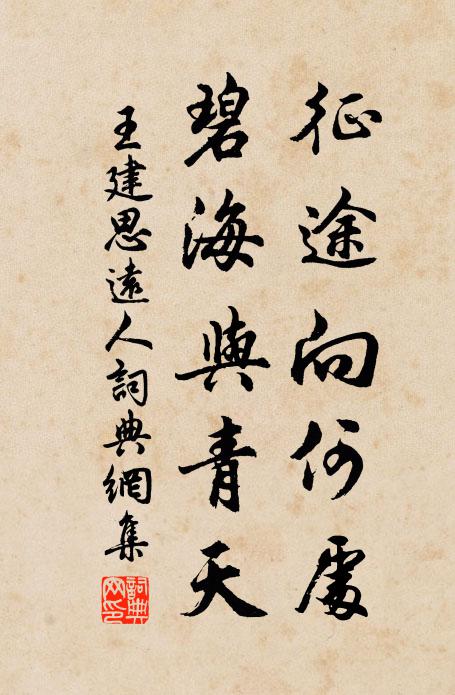 征途向何處
碧海與青天
王建思遠人詞典網集
詞典網印